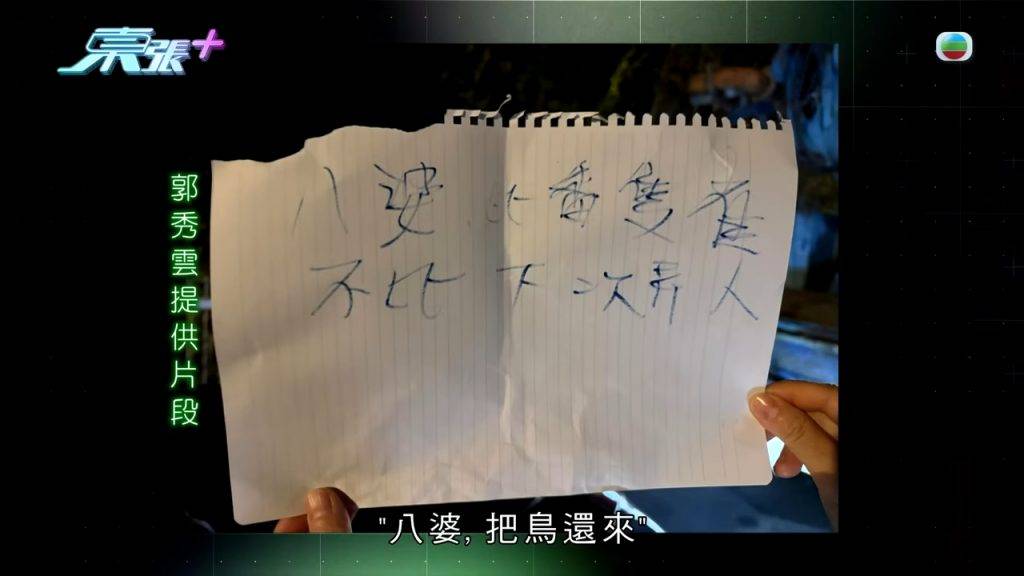 東張+
郭秀雲提供片段
八婆 比番隻雀
不比 下次弄人
"八婆, 把鳥還來"